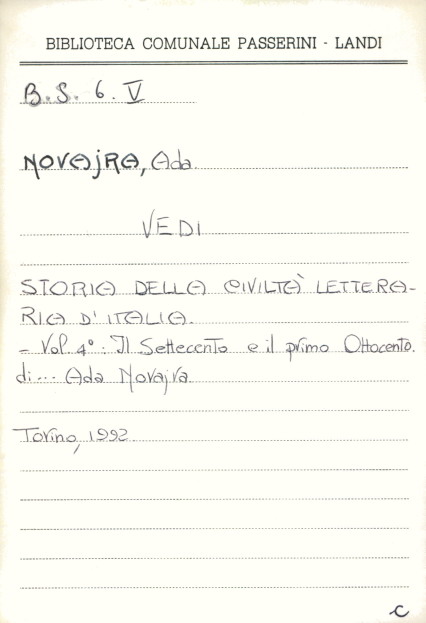 BIBLIOTECA COMUNALE PASSERINI - LANDI
B. S. 6. V
NOVAjRA, Ada
VEDI
STORIA DELLA CIVILTÀ LETTERA-
RIA D'ITALIA.
- Vol. 4°: Il Settecento e il primo Ottocento.
di... Ada Novajra.
Torino, 1992
C